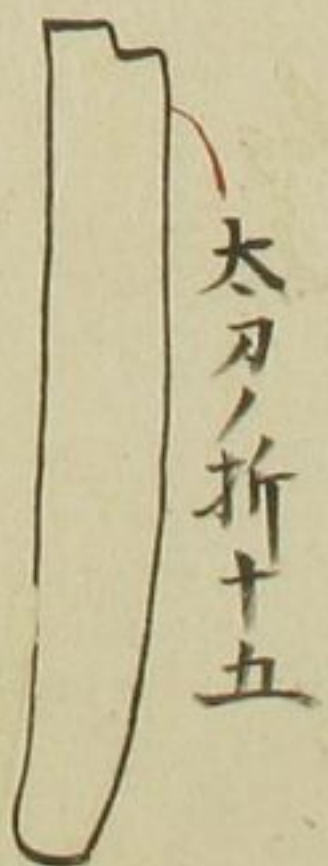 太刀ノ折十五